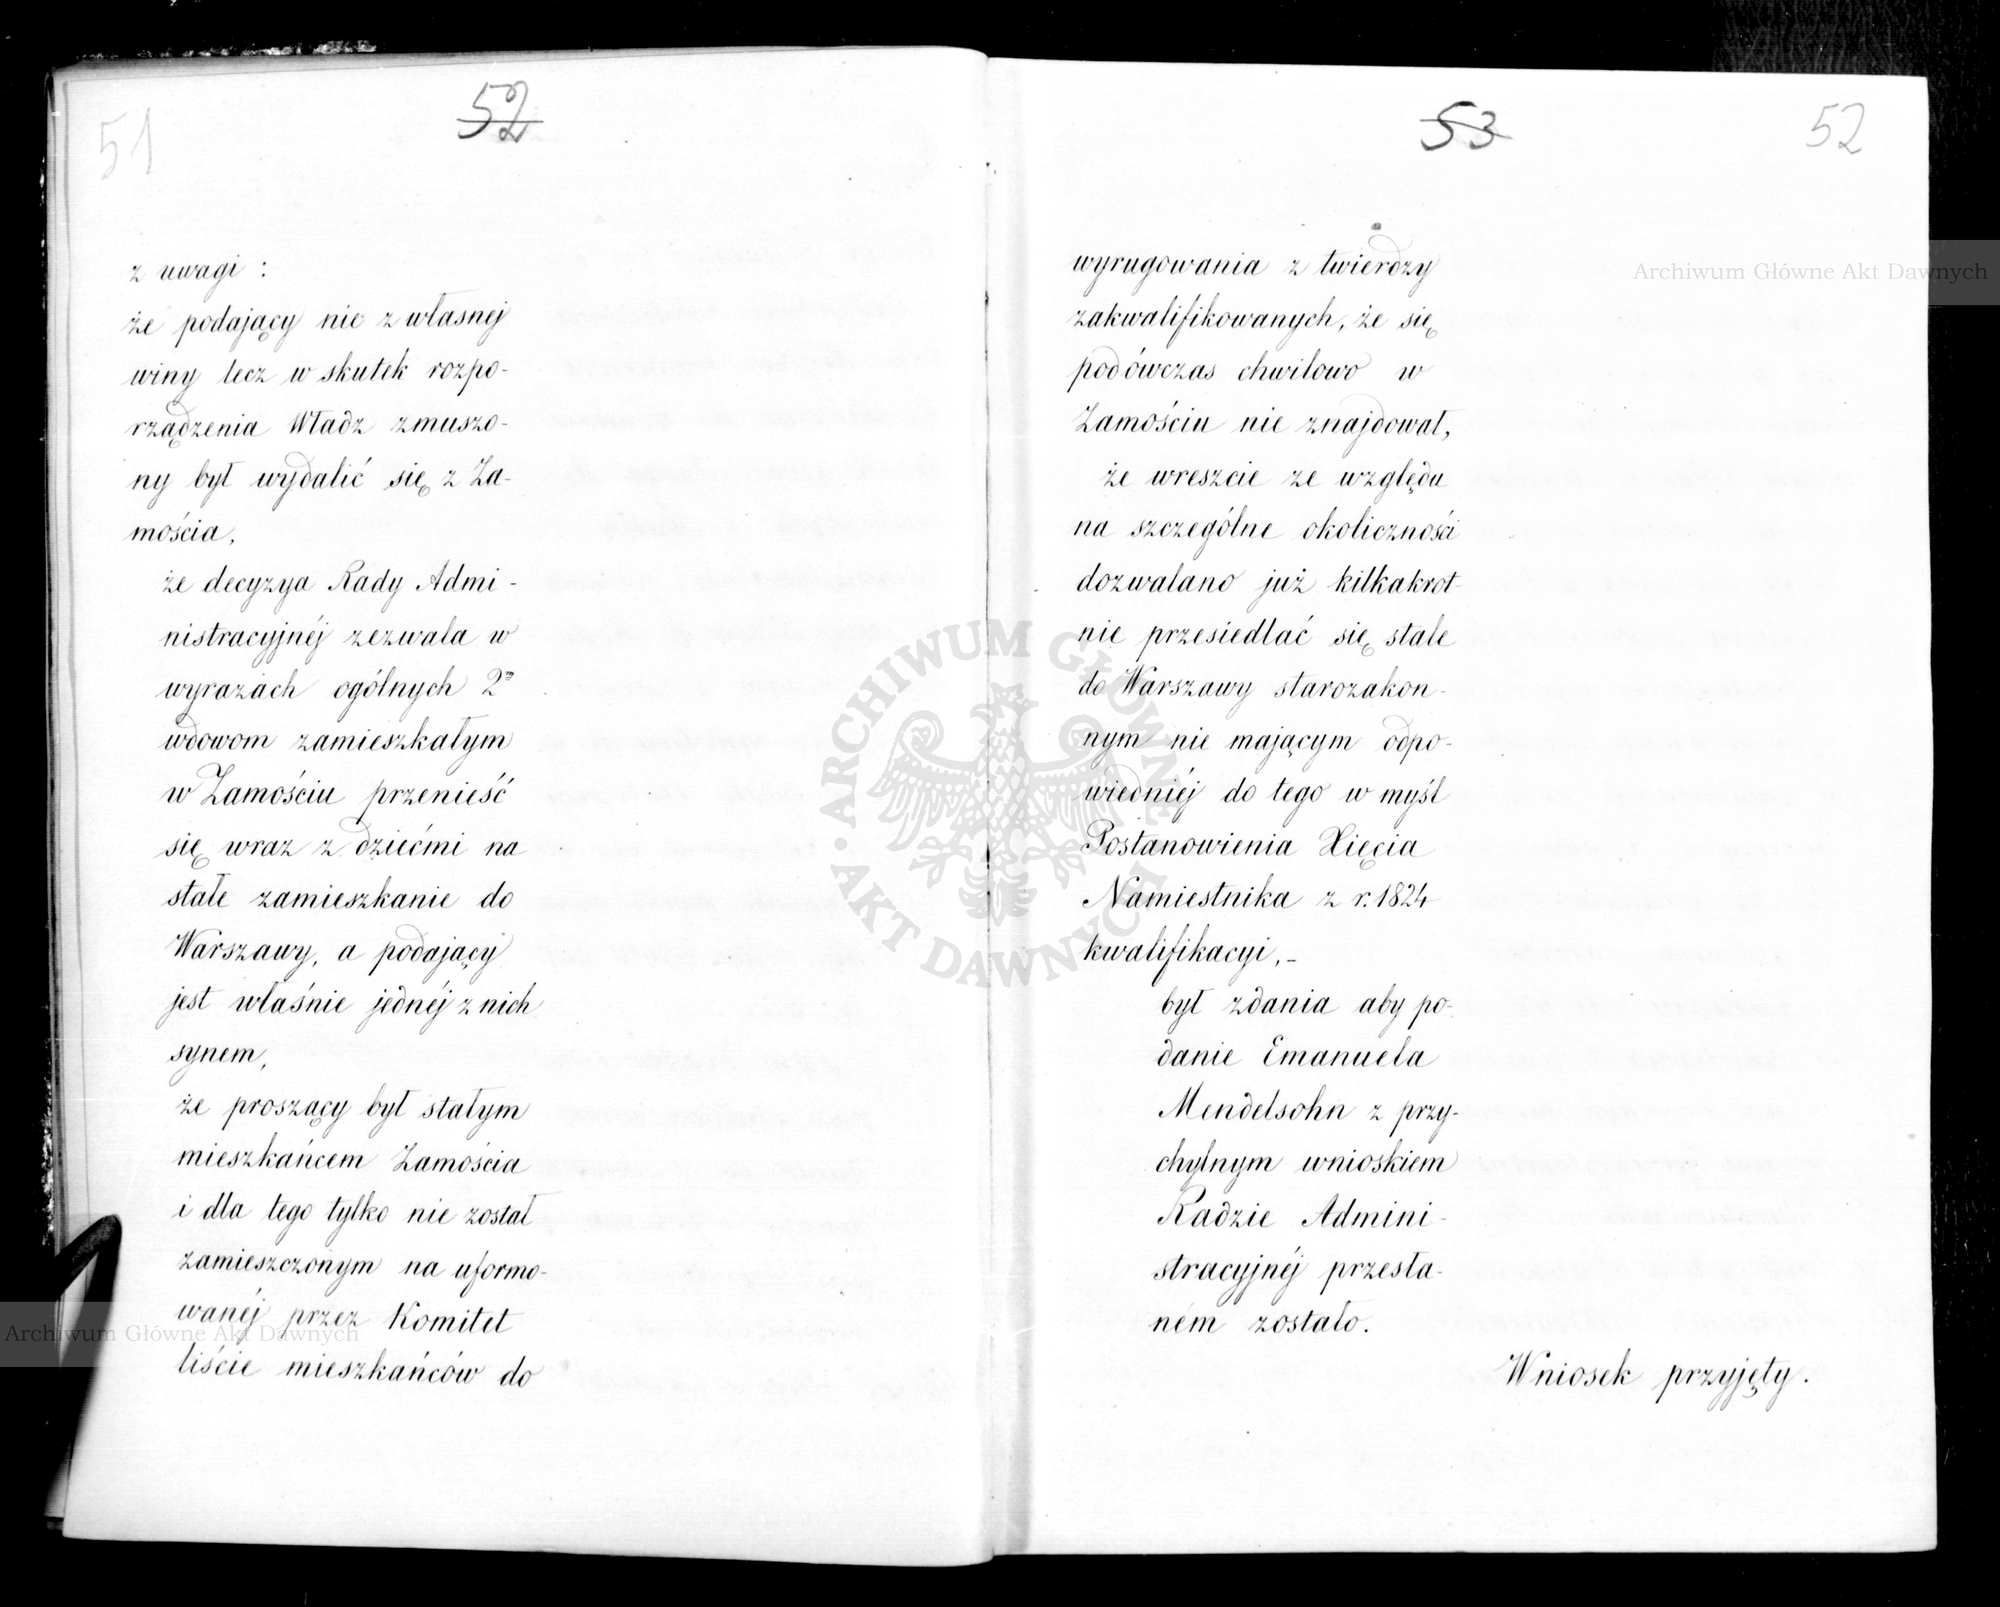 51
52
z uwagi :
że podający nie z własnej
winy lecz w skutek rozpo-
rządzenia Władz zmuszo-
ny był wydalić się z Za-
mościa,
że decyzya Rady Admi-
nistracyjnéj zezwala w
wyrazach ogólnych 2m
wdowom zamieszkałym
w Zamościu przenieść
się wraz z dziećmi na
stałe zamieszkanie do
Warszawy, a podający
jest właśnie jednéj z nich
synem,
że proszący był stałym
mieszkańcem Zamościa
i dla tego tylko nie został
zamieszczonym na uformo-
wanéj przez Komitet
liście mieszkańców do
53
52
wyrugowania z twierdzy
zakwalifikowanych, że się
podówczas chwilowo w
Zamościu nie znajdował,
że wreszcie ze względu
na szczególne okoliczności
dozwalano już kilkakrot-
nie przesiedlać się stale
do Warszawy starozakon-
nym nie mającym odpo-
wiedniéj do tego w myśl
Postanowienia Xięcia
Namiestnika z r. 1824
kwalifikacyi,-
był zdania aby po-
danie Emanuela
Mendelsohn z przy-
chylnym wnioskiem
Radzie Admini-
stracyjnéj przesła-
ném zostało.
Wniosek przyjęty.
Archiwum Główne Akt Dawnych
ARCHIWUM GŁÓWNE
AKT DAWNYCH
Archiwum Główne Akt Dawnych